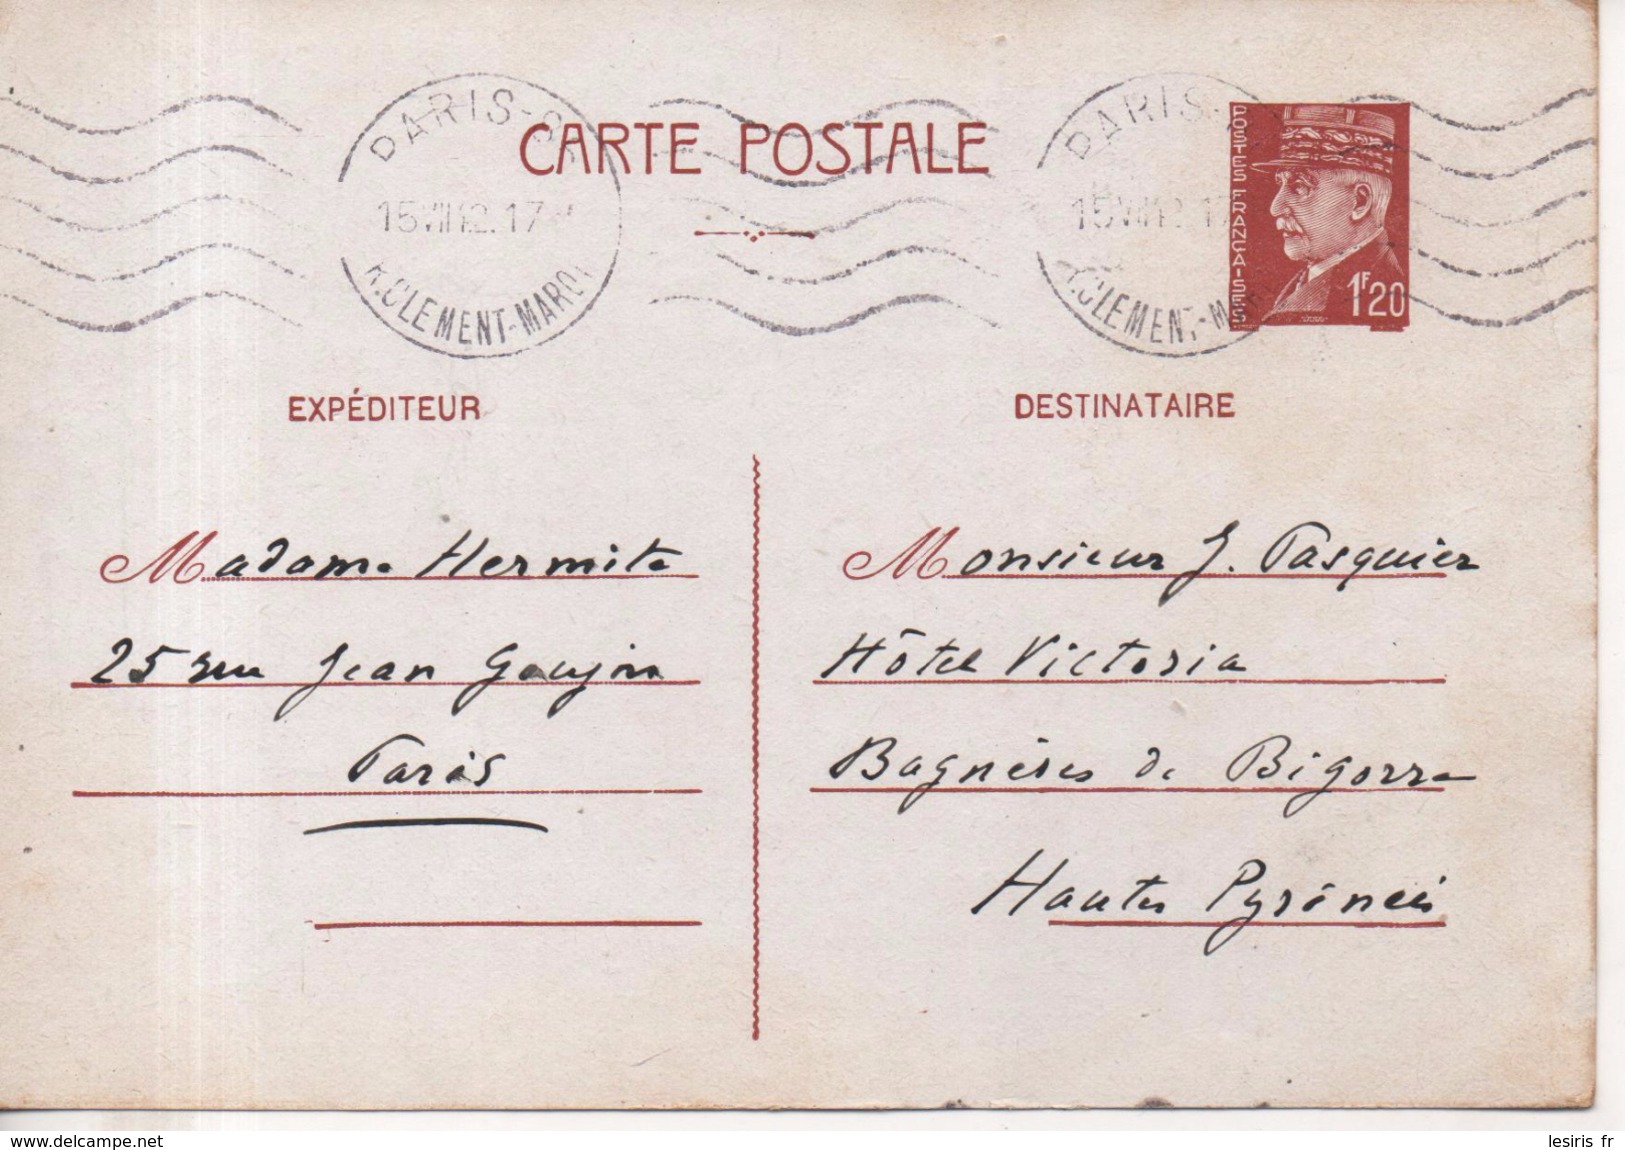 PARIS-
15 VIII 42. 17
R.CLEMENT-MAROT
CARTE POSTALE
PARIS
15 VIII 42. 17
R.CLEMENT-MAR
POSTES FRANÇAISES
1F20
EXPÉDITEUR
DESTINATAIRE
Madame Hermite
25 rue Jean Goujon
Paris
Monsieur J. Pasquier
Hôtel Victoria
Bagnères de Bigorre
Hautes Pyrénées
www.delcampe.net
lesiris fr